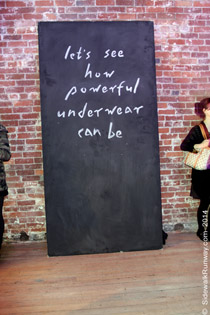 let's see
how
powerful
underwear
can be
© SidewalkRunway.com-2014